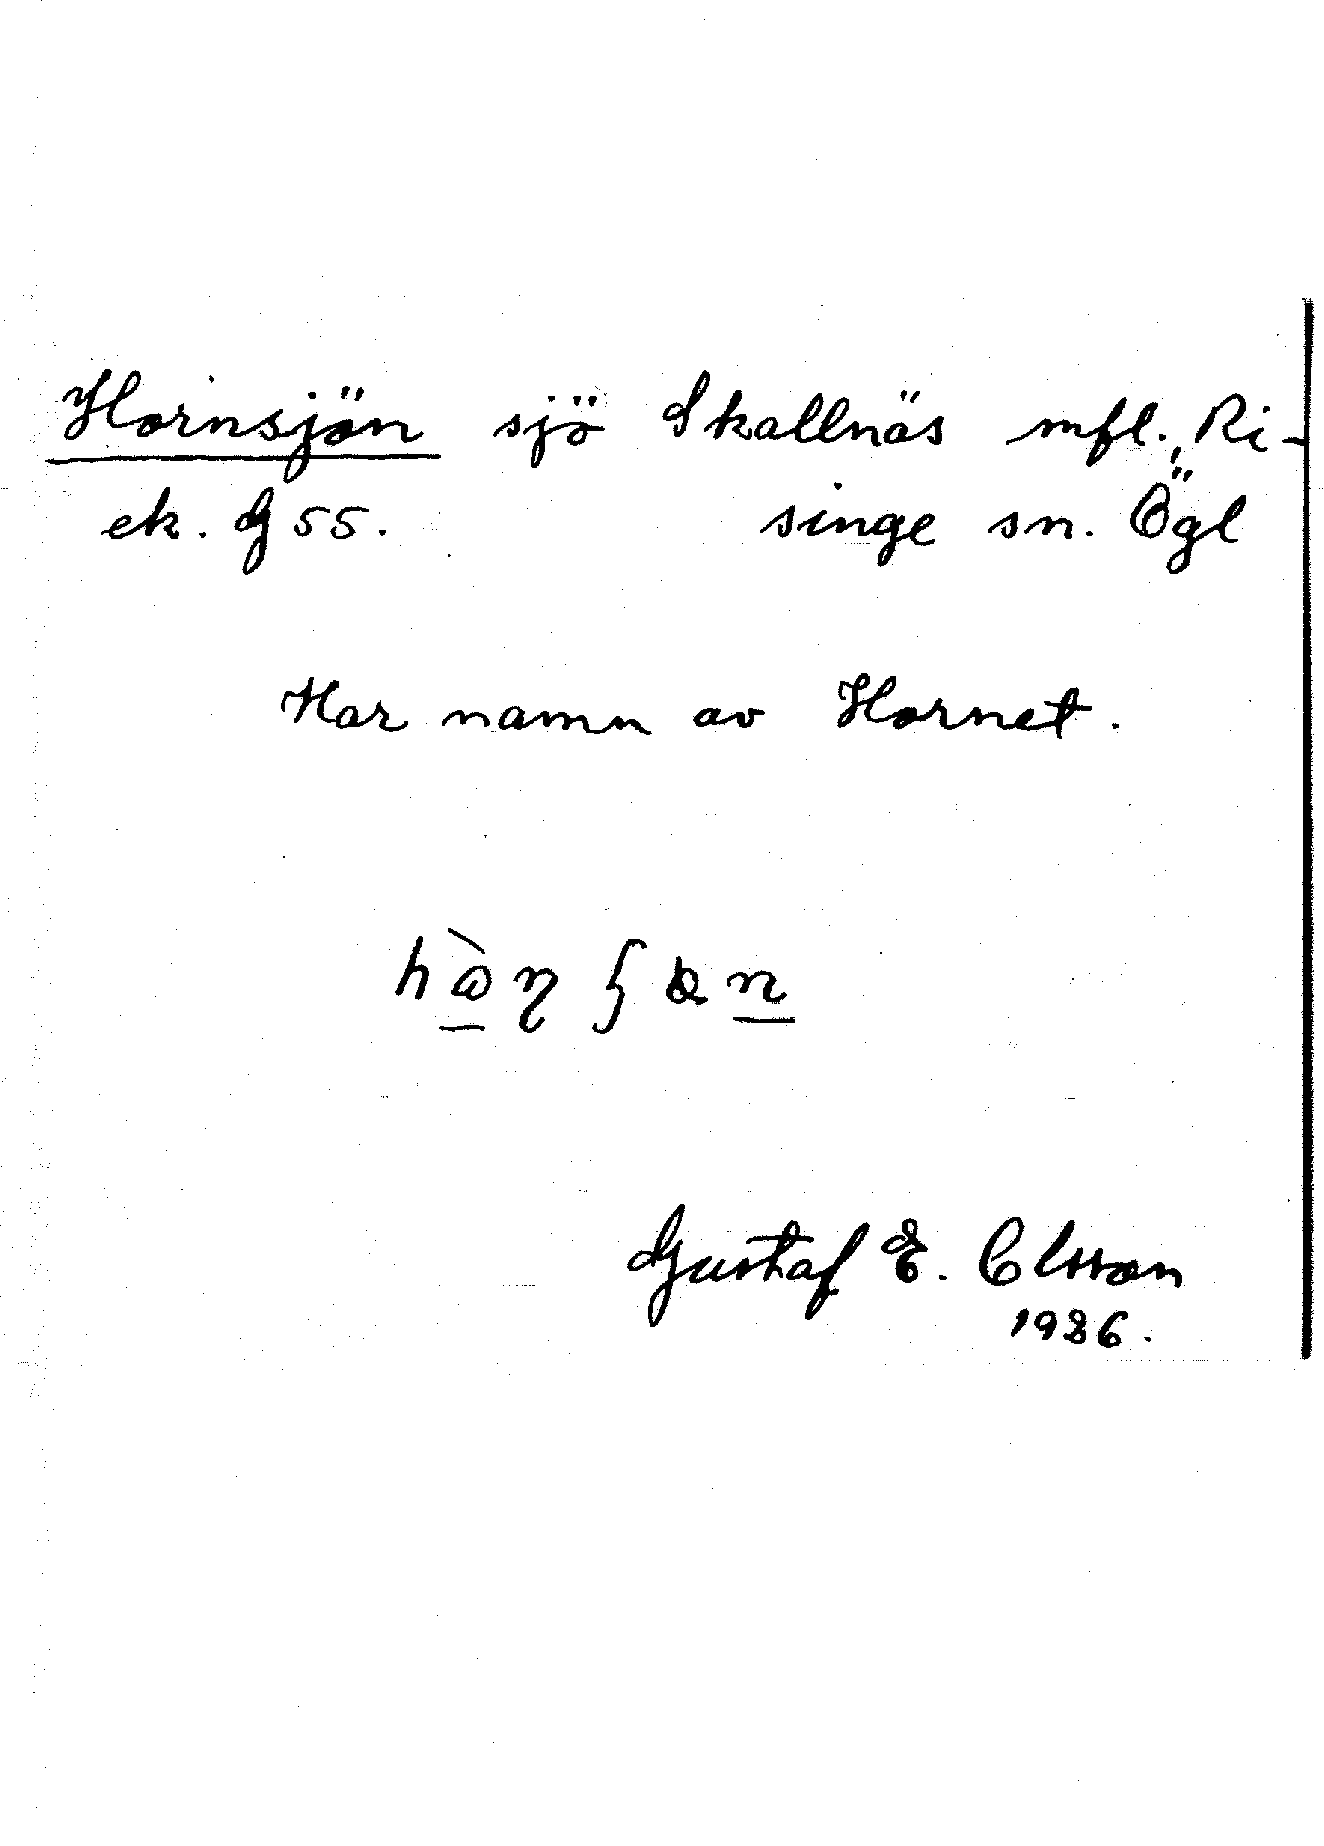 Hornsjön sjö Skallnäs mfl., Ri-
ek. G 55. singe sn. Ögl
Har namn av Hornet.
Gustaf E. Olsson
1986.